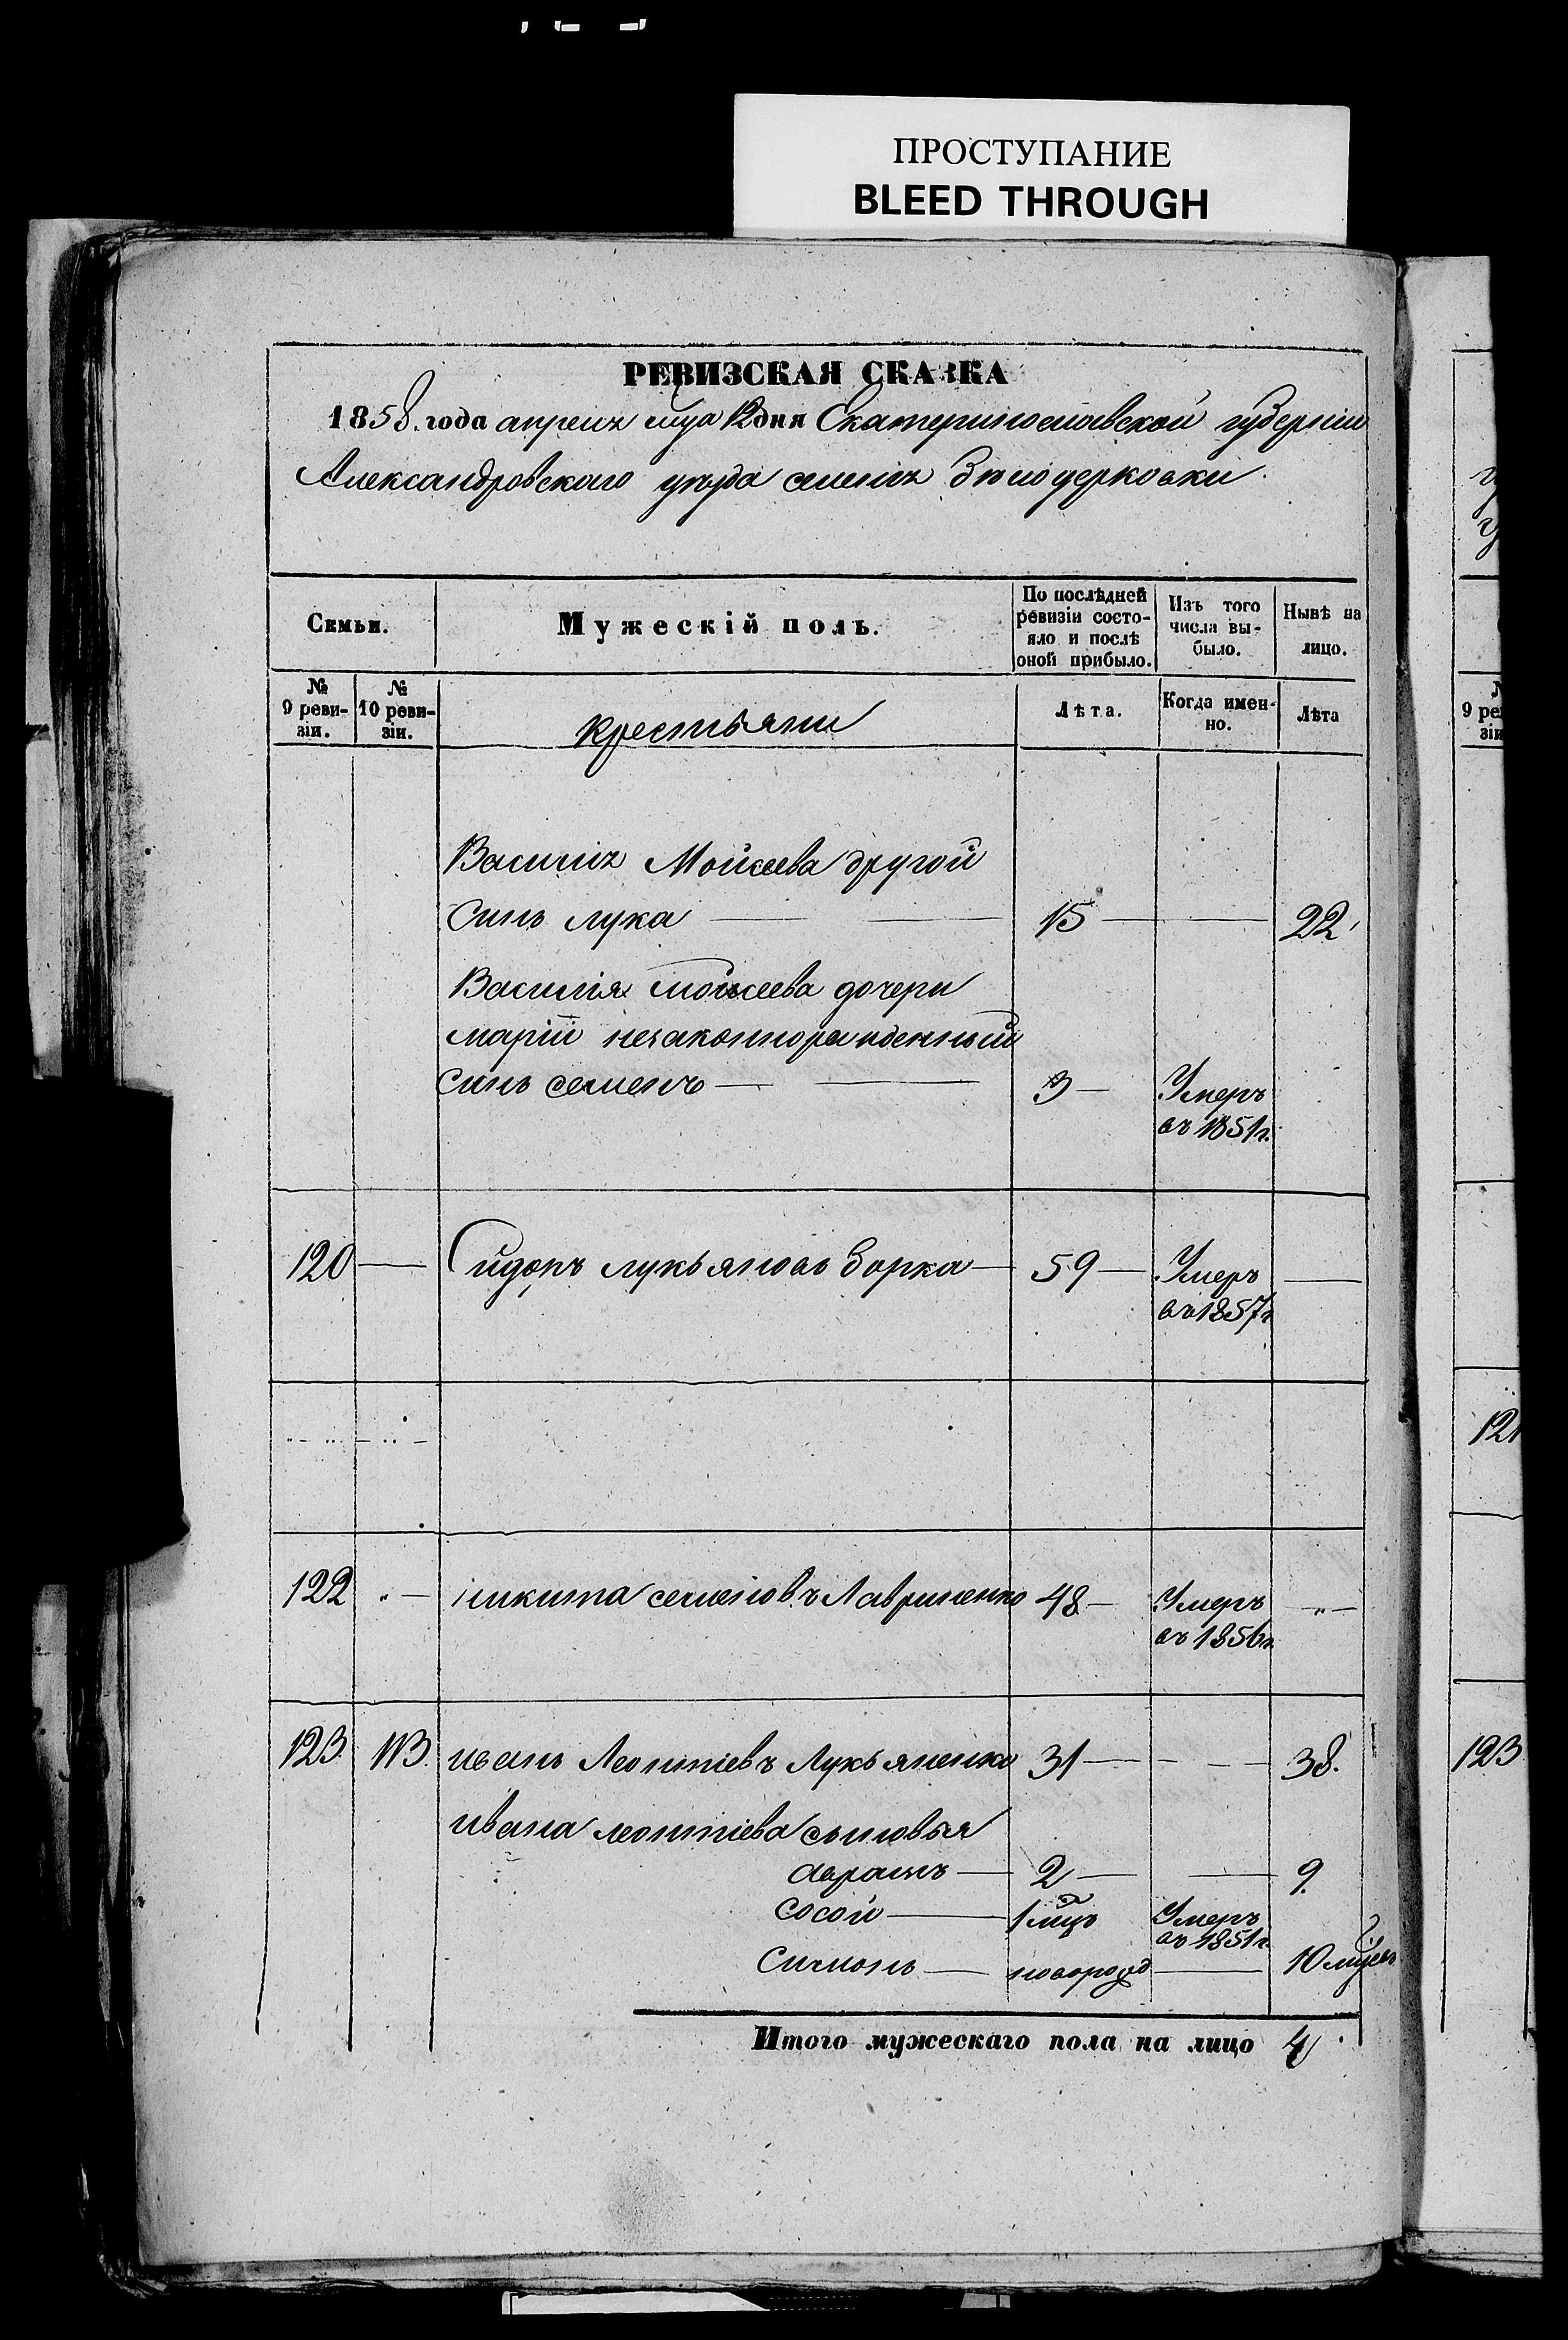 ПРОСТУПАНИЕ
BLEED THROUGH
РЕВИЗСКАЯ СКАЗКА
1858 года апреля мца 12 дня Екатеринославской губерніи
Александровскаго уезда селенія
Семьи.
Мужескій полъ.
По послѣдней ревизіи состо-яло и послѣ оной прибыло.
Изъ того числа вы-было.
Нынѣ на лицо.
№ 9 реви-зіи.
№ 10 реви-зіи.
крестьяни
Лѣта.
Когда имен-но.
Лѣта
Василія Мойсеева другой
синъ лука 15 22
Василія мойсеева дочери
маріи незаконнорожденный
синъ семенъ 3 Умеръ
въ 1851г.
120 Сидоръ лукьяновъ Зорка 59 Умеръ
въ 1857г
122 никита семеновъ Лавриненко 48 Умеръ
въ 1856г.
123 113 иванъ Леонтіевъ Лукьяненко 31 38.
ивана леонтіева сыновья
аврамъ 2 9.
сосой 1 мцъ Умеръ
въ 1851г
Симонъ новорожд 10 мцевъ
Итого мужескаго пола на лицо 4
9 рев
зіи
121
123